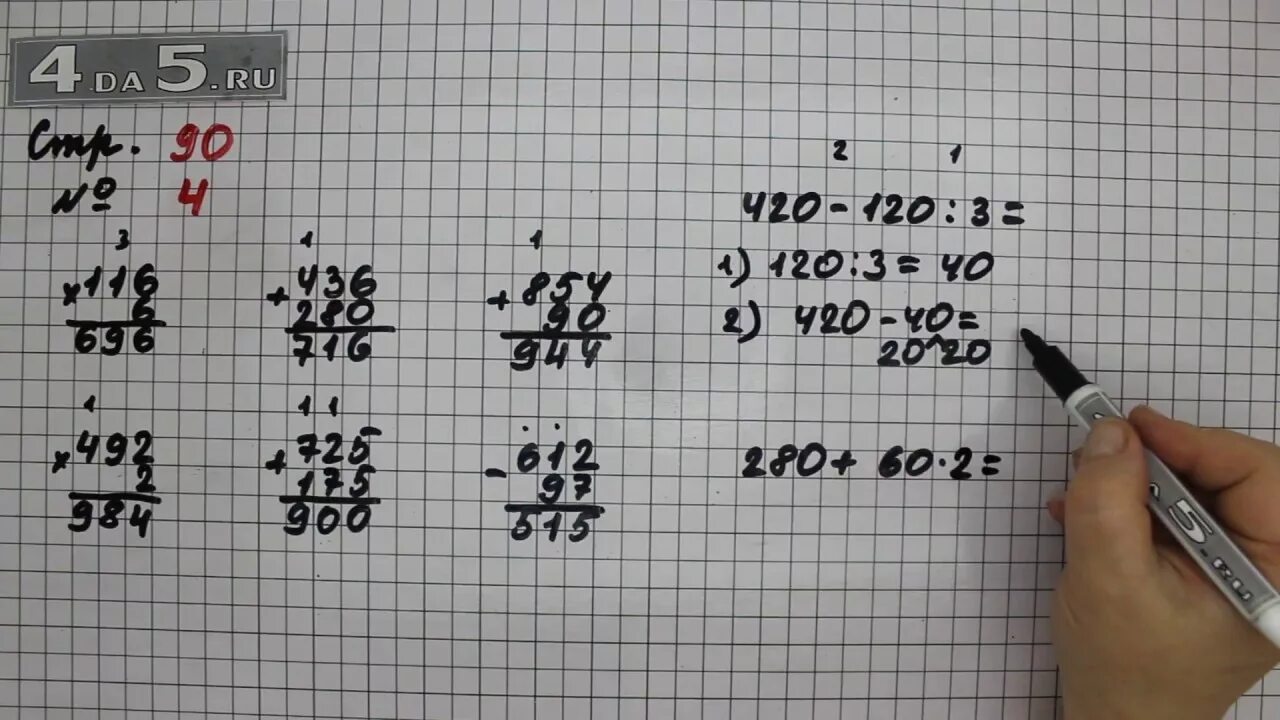 4DA5.RU
Стр. 90
№ 4
3
×116
6
696
1
+436
280
716
1
+854
90
944
1
×492
2
984
1 1
+725
175
900
. .
-612
97
515
2 1
420-120:3=
1) 120:3=40
2) 420-40=
20 20
280+60·2=
5.RU